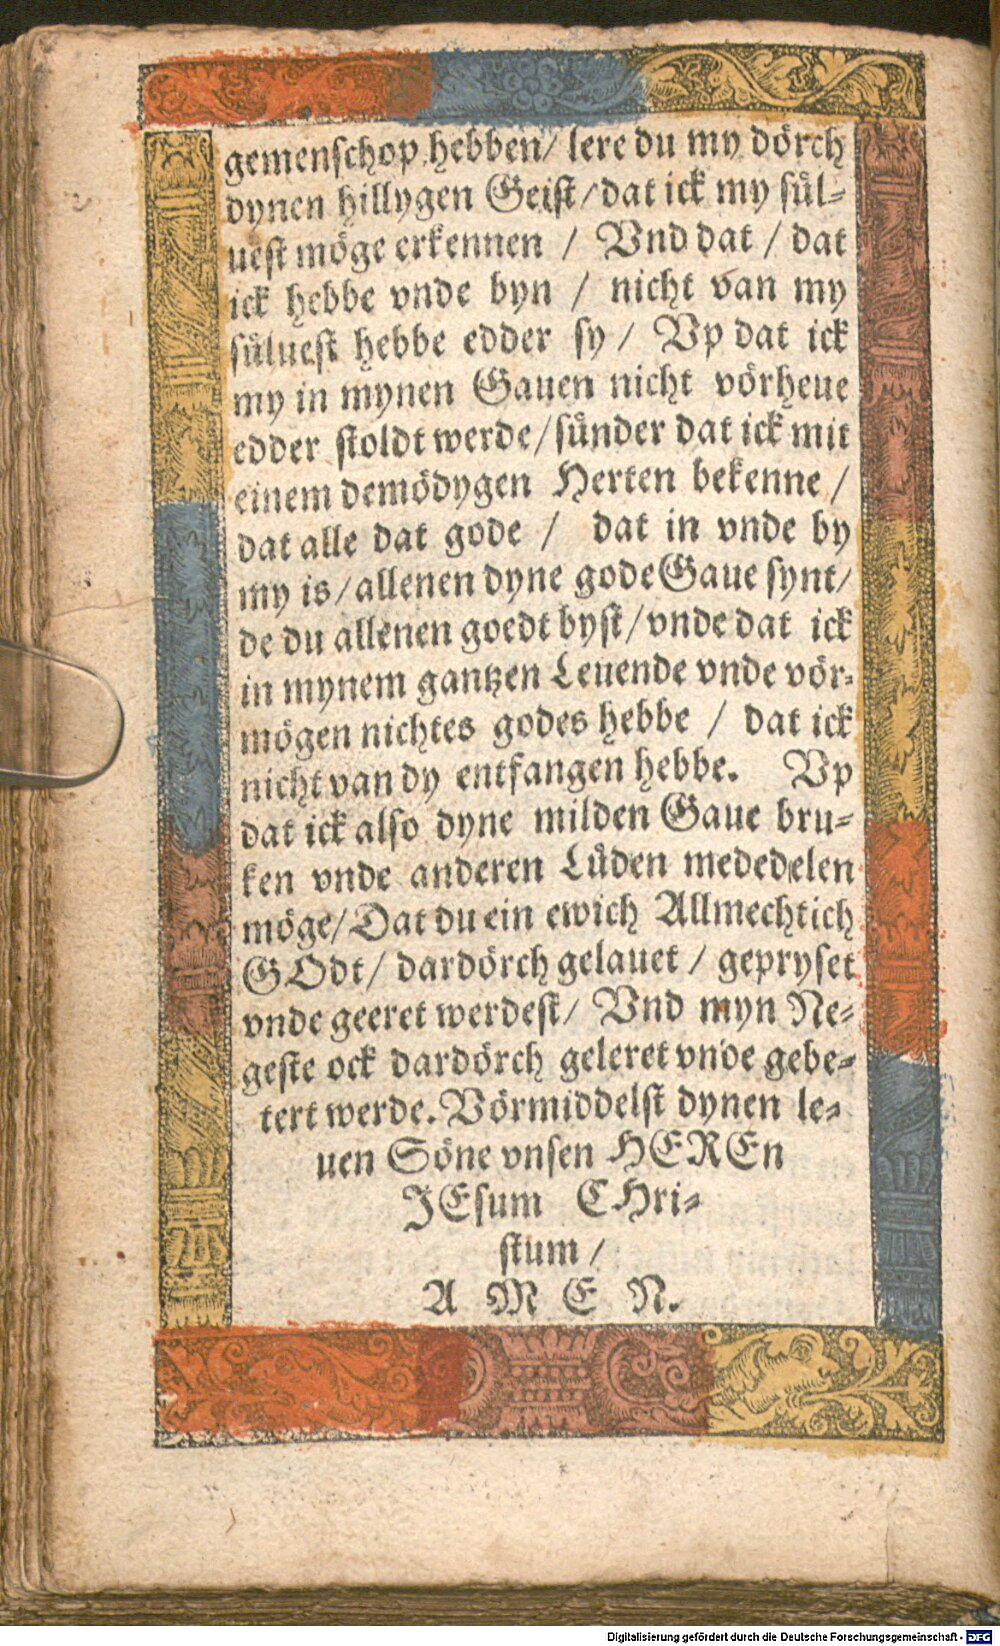 gemenschop hebben/ lere du my dörch
dynen hillygen Geist/ dat ick my sül⸗
uest möge erkennen / Vnd dat / dat
ick hebbe vnde byn / nicht van my
süluest hebbe edder sy / Vp dat ick
my in mynen Gauen nicht vörheue
edder stoldt werde/ sünder dat ick mit
einem demödygen Herten bekenne /
dat alle dat gode / dat in vnde by
my is/ allenen dyne gode Gaue synt/
de du allenen goedt byst/ vnde dat ick
in mynem gantzen Leuende vnde vör⸗
mögen nichtes godes hebbe / dat ick
nicht van dy entfangen hebbe. Vp
dat ick also dyne milden Gaue bru⸗
ken vnde anderen Lüden mededelen
möge/ Dat du ein ewich Allmechtich
GOdt/ dardörch gelauet / gepryset
vnde geeret werdest/ Vnd myn Ne⸗
geste ock dardörch geleret vnde gebe⸗
tert werde. Vörmiddelst dynen le⸗
uen Söne vnsen HEREn
JEsum CHri⸗
stum /
A M E N.
Digitalisierung gefördert durch die Deutsche Forschungsgemeinschaft - DFG